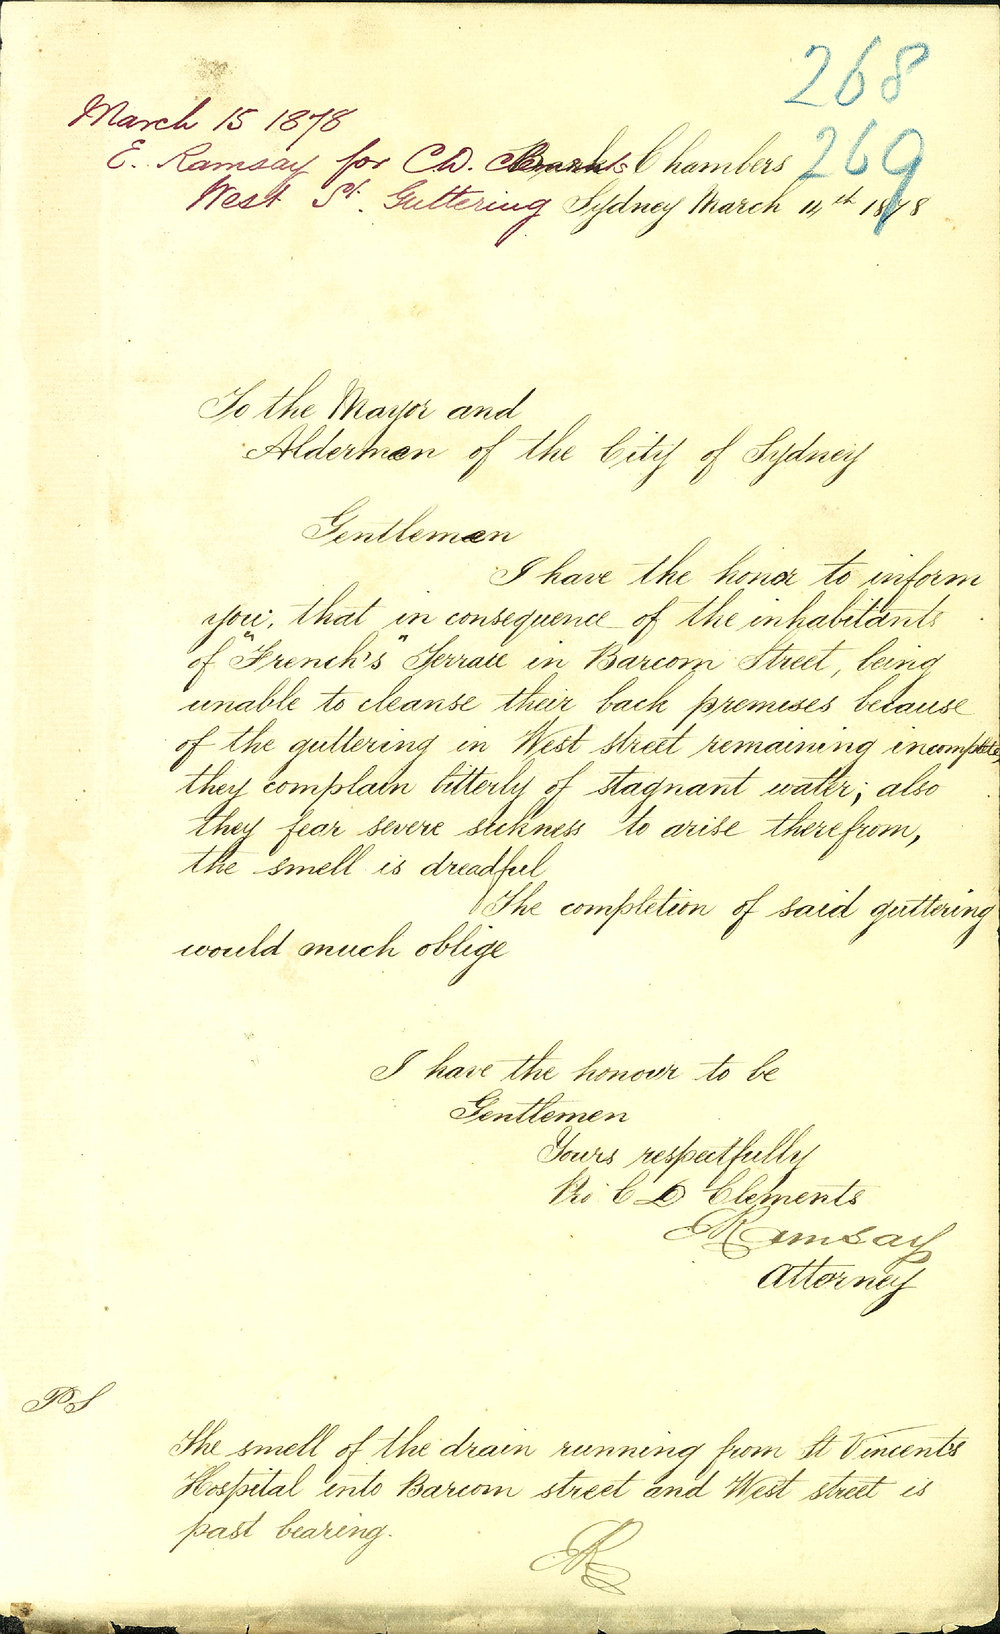 268
269
March 15 1878
E. Ramsay for C.D. Chambers
West St. Guttering Sydney March 14th 1878
To the Mayor and
Aldermen of the City of Sydney
Gentlemen
I have the honor to inform
you, that in consequence of the inhabitants
of "French's" Terrace in Barcom Street, being
unable to cleanse their back premises because
of the guttering in West street remaining incomplete,
they complain bitterly of stagnant water; also
they fear severe sickness to arise therefrom,
the smell is dreadful
The completion of said guttering
would much oblige
I have the honour to be
Gentlemen
Yours respectfully
Pro C D Clements
ERamsay
Attorney
PS
The smell of the drain running from St Vincents
Hospital into Barcom street and West street is
past bearing.
ER